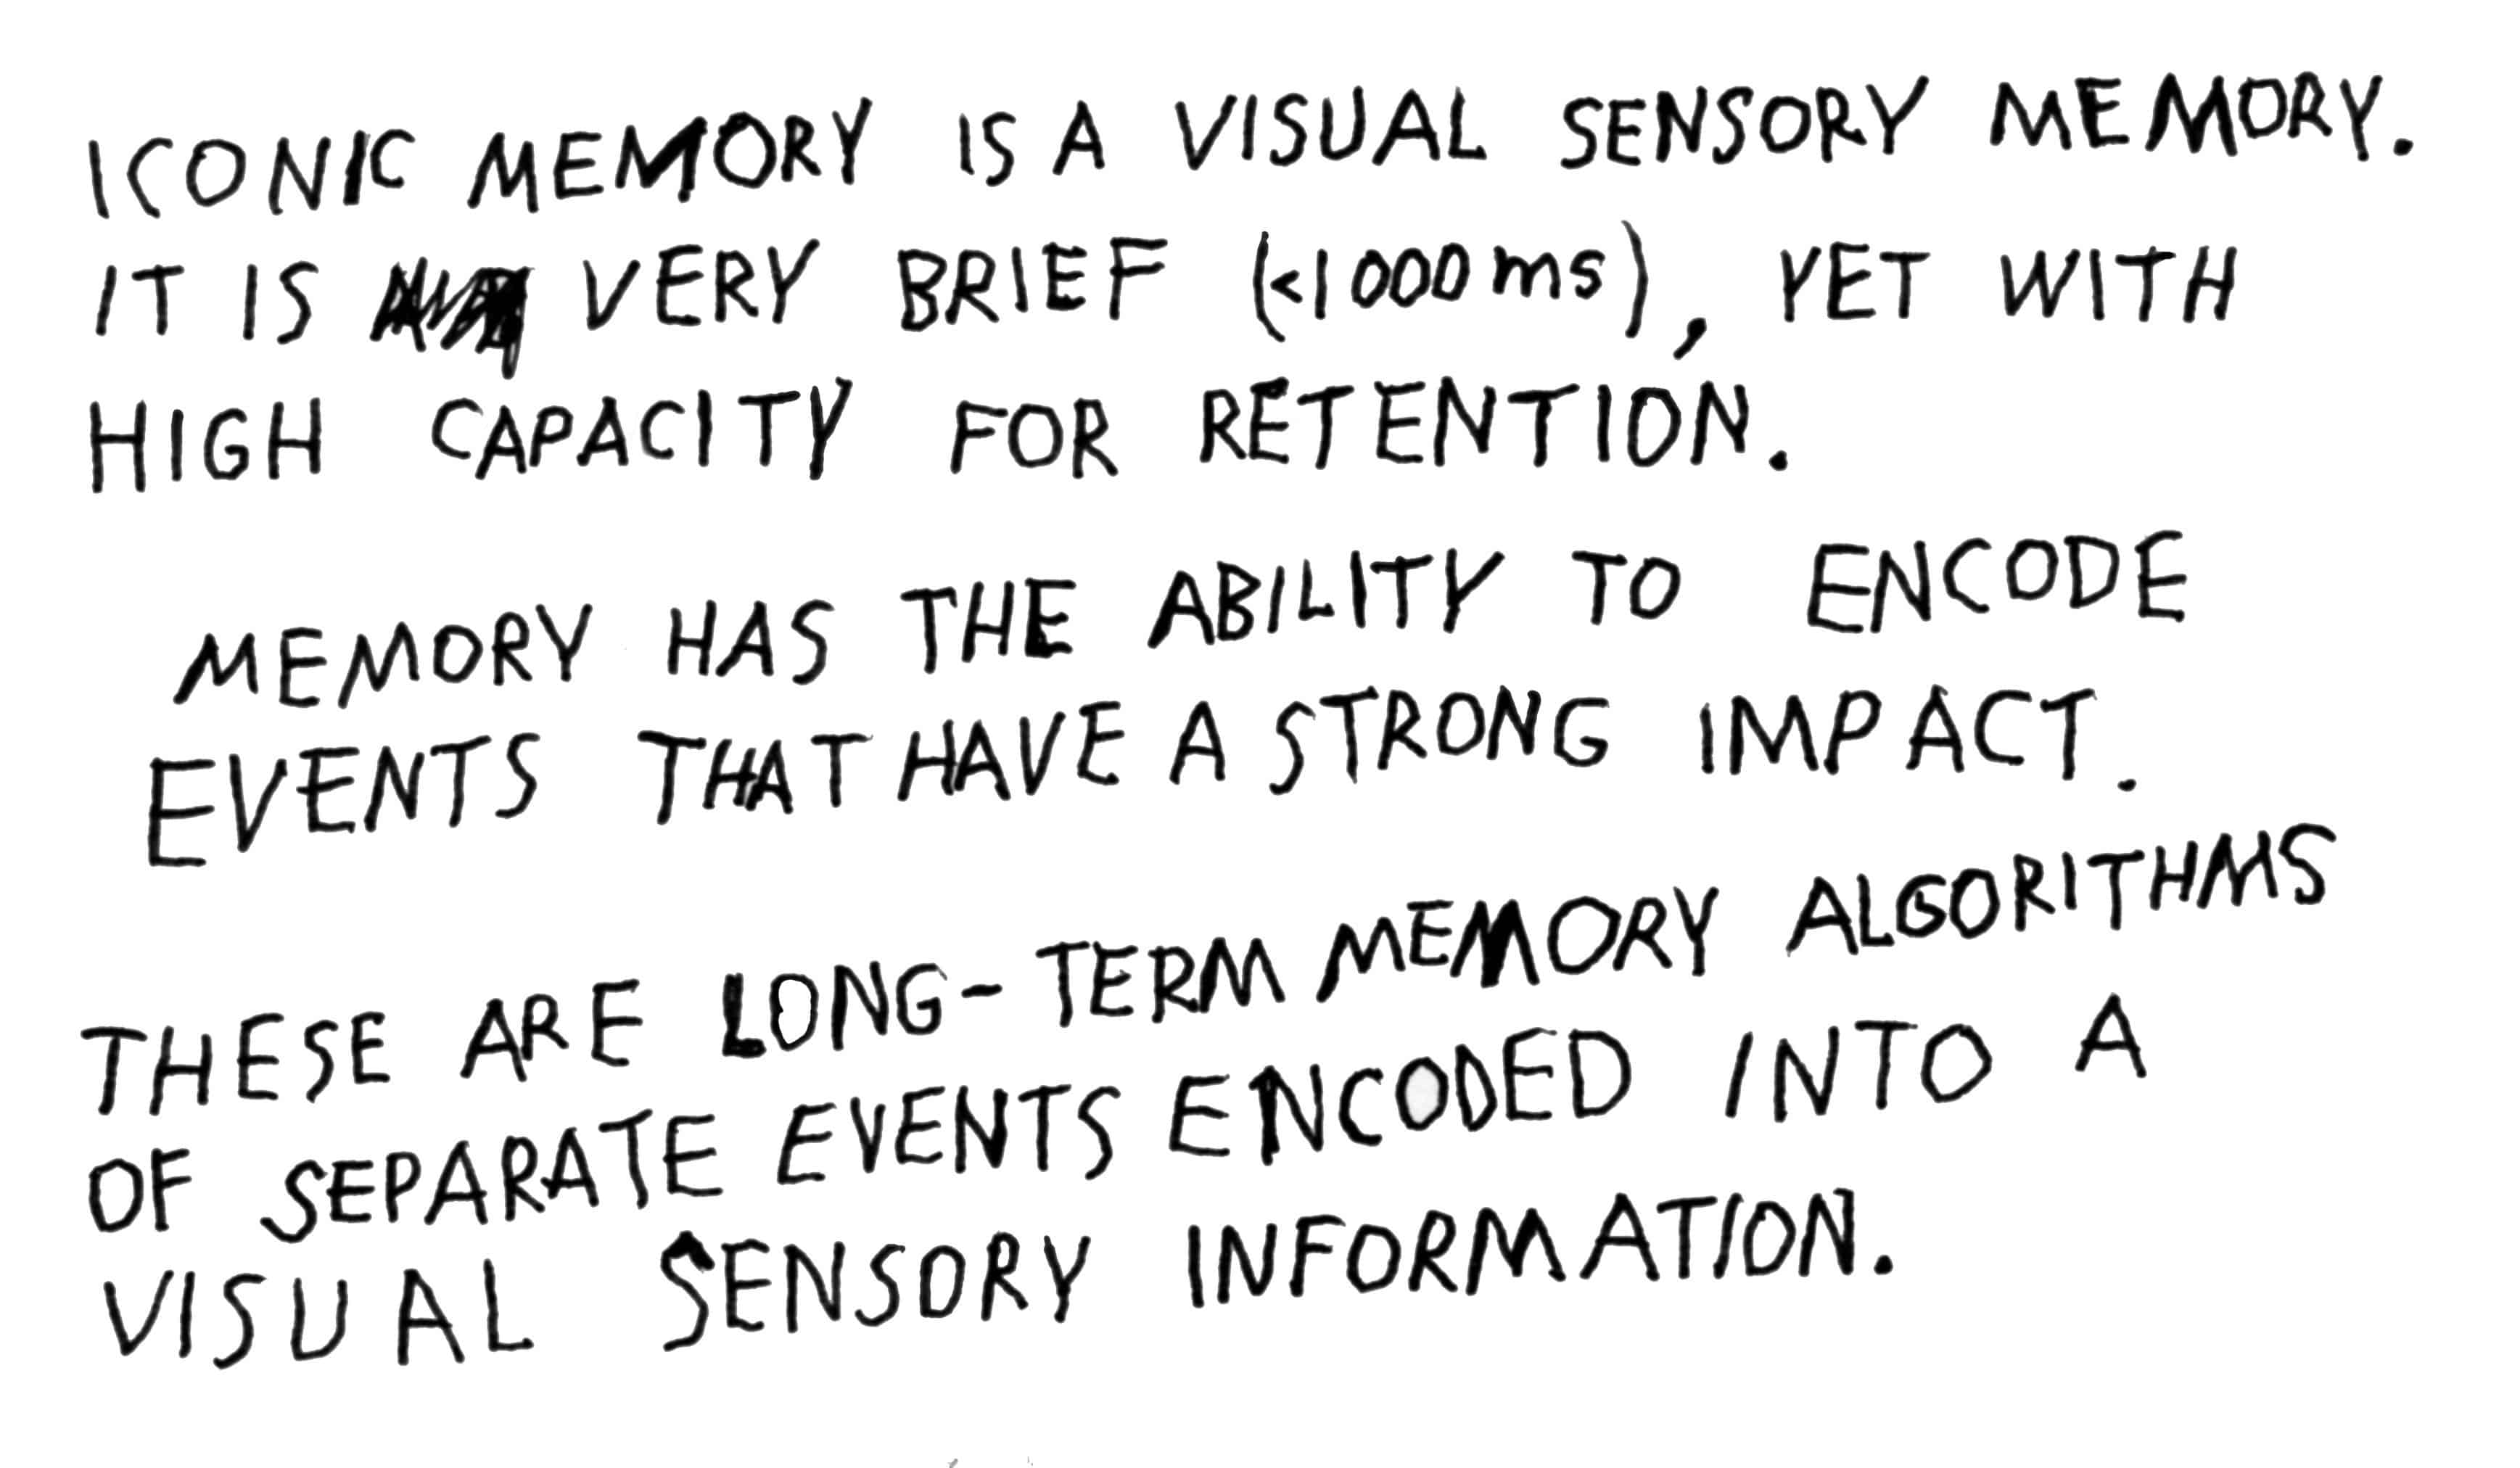 ICONIC MEMORY IS A VISUAL SENSORY MEMORY.
IT IS VERY BRIEF (<1000 ms), YET WITH
HIGH CAPACITY FOR RETENTION.
MEMORY HAS THE ABILITY TO ENCODE
EVENTS THAT HAVE A STRONG IMPACT.
THESE ARE LONG-TERM MEMORY ALGORITHMS
OF SEPARATE EVENTS ENCODED INTO A
VISUAL SENSORY INFORMATION.